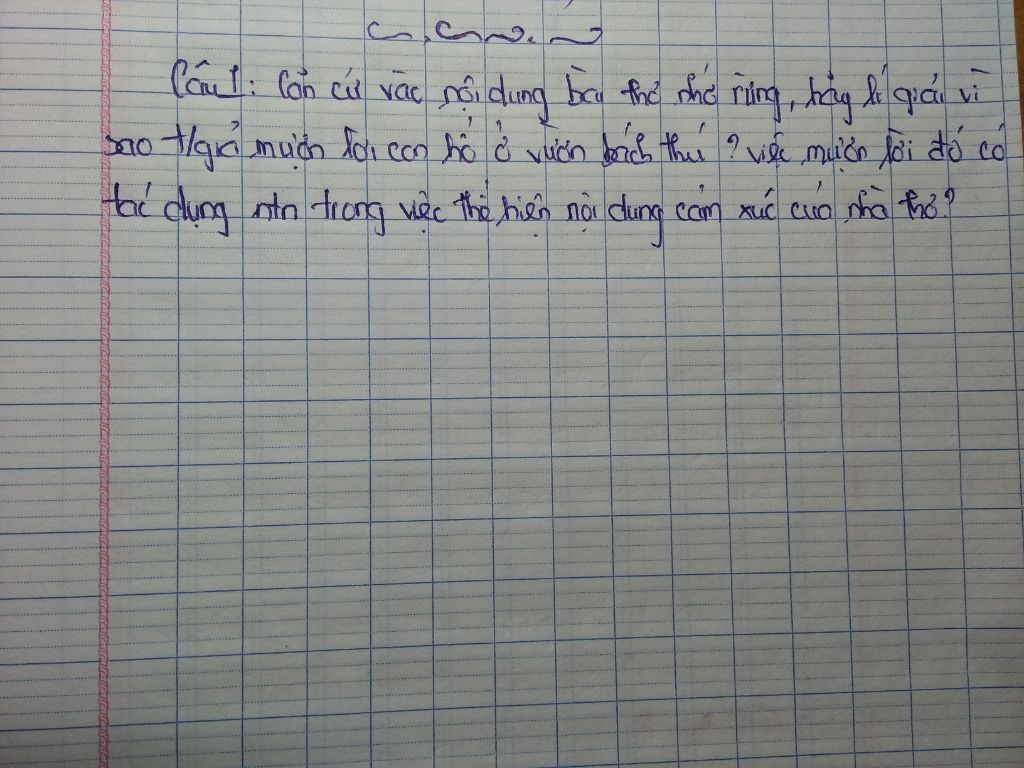 Câu 1: Căn cứ vào nội dung bài thơ nhớ rừng, hãy lí giải vì
sao t/giả mượn lời con hổ ở vườn bách thú? việc mượn lời đó có
tác dụng ntn trong việc thể hiện nội dung cảm xúc của nhà thơ?